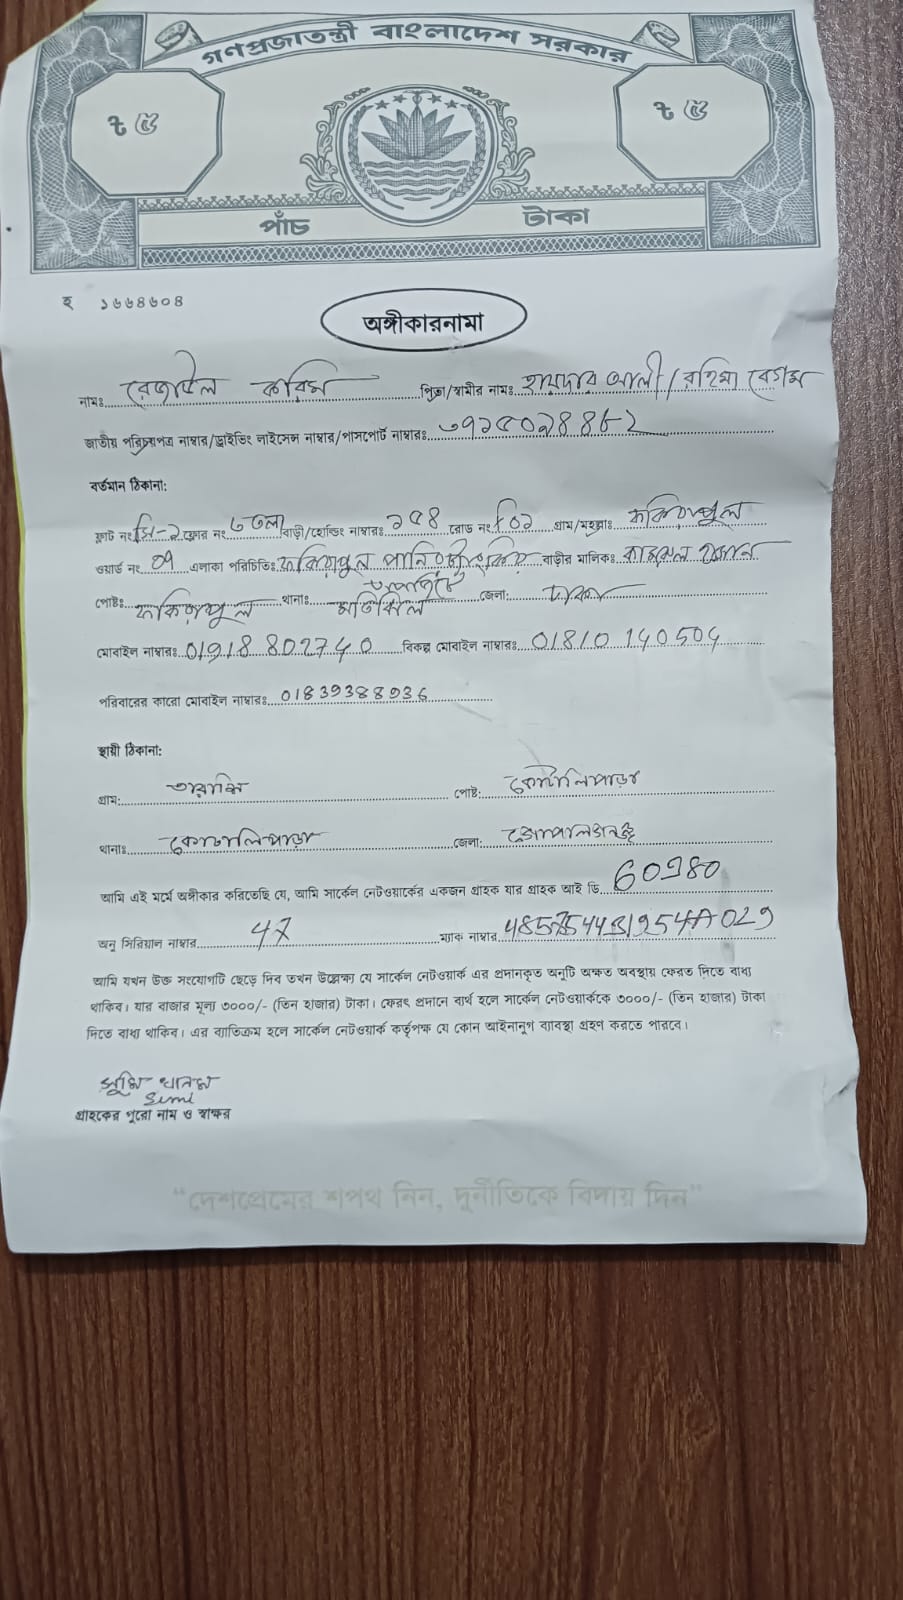 গণপ্রজাতন্ত্রী বাংলাদেশ সরকার
৳ ৫ ৳ ৫
পাঁচ টাকা
হ ১৬৬৪৬০৪
অঙ্গীকারনামা
নামঃ রেজাউল করিম পিতা/স্বামীর নামঃ হায়দার আলী / রহিমা বেগম
জাতীয় পরিচয়পত্র নাম্বার/ড্রাইভিং লাইসেন্স নাম্বার/পাসপোর্ট নাম্বারঃ
বর্তমান ঠিকানা:
ফ্লাট নংঃ সি-২ ফ্লোর নংঃ ৬ তলা বাড়ী/হোল্ডিং নাম্বারঃ ১৫৪ রোড নংঃ গ্রাম/মহল্লাঃ ফকিরাপুল
ওয়ার্ড নংঃ ০৯ এলাকা পরিচিতিঃ ফকিরাপুল পানির বাড়ীর মালিকঃ
পোষ্টঃ ফকিরাপুল থানাঃ মতিঝিল জেলা: ঢাকা
মোবাইল নাম্বারঃ 01918802740 বিকল্প মোবাইল নাম্বারঃ 01810140504
পরিবারের কারো মোবাইল নাম্বারঃ
স্থায়ী ঠিকানা:
গ্রাম: পোষ্ট: কোটালিপাড়া
থানাঃ কোটালিপাড়া জেলা: গোপালগঞ্জ
আমি এই মর্মে অঙ্গীকার করিতেছি যে, আমি সার্কেল নেটওয়ার্কের একজন গ্রাহক যার গ্রাহক আই ডি
অনু সিরিয়াল নাম্বার 47 ম্যাক নাম্বার
আমি যখন উক্ত সংযোগটি ছেড়ে দিব তখন উল্লেক্ষ্য যে সার্কেল নেটওয়ার্ক এর প্রদানকৃত অনুটি অক্ষত অবস্থায় ফেরত দিতে বাধ্য
থাকিব। যার বাজার মূল্য ৩০০০/- (তিন হাজার) টাকা। ফেরৎ প্রদানে ব্যর্থ হলে সার্কেল নেটওয়ার্ককে ৩০০০/- (তিন হাজার) টাকা
দিতে বাধ্য থাকিব। এর ব্যতিক্রম হলে সার্কেল নেটওয়ার্ক কর্তৃপক্ষ যে কোন আইনানুগ ব্যাবস্থা গ্রহণ করতে পারবে।
সুমি খানম
Sumi
গ্রাহকের পুরো নাম ও স্বাক্ষর
“দেশপ্রেমের শপথ নিন, দুর্নীতিকে বিদায় দিন”